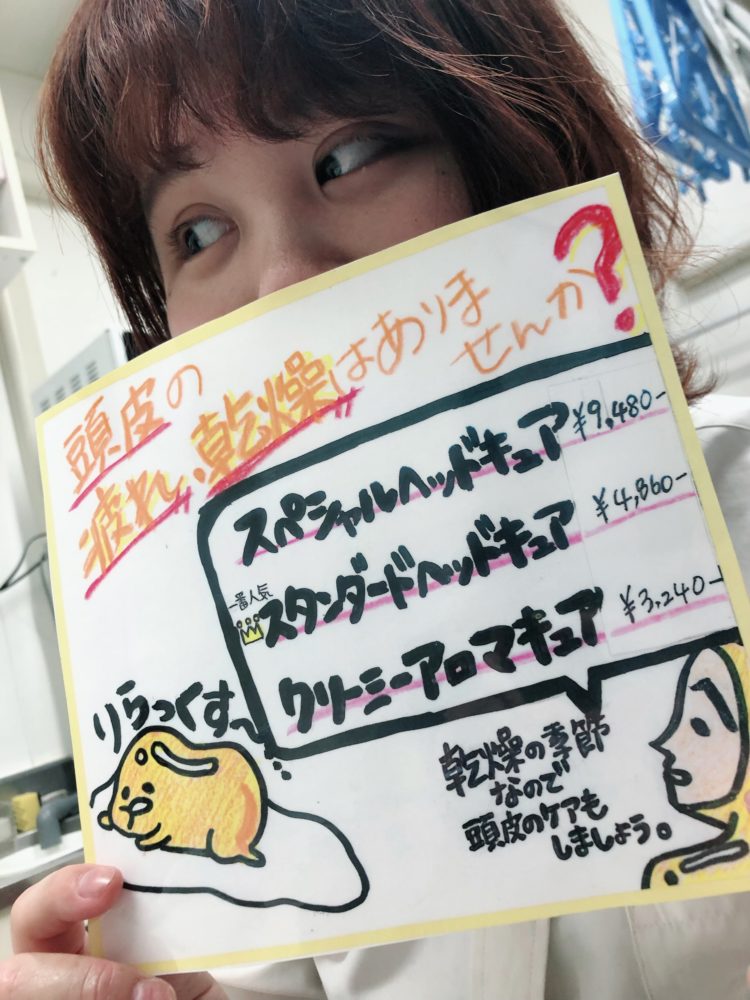 頭皮の
疲れ、乾燥はありま
せんか?
スペシャルヘッドキュア ¥9,480-
一番人気
スタンダードヘッドキュア ¥4,860-
クリーミーアロマキュア ¥3,240-
りらっくす〜
乾燥の季節
なので
頭皮のケアも
しましょう。